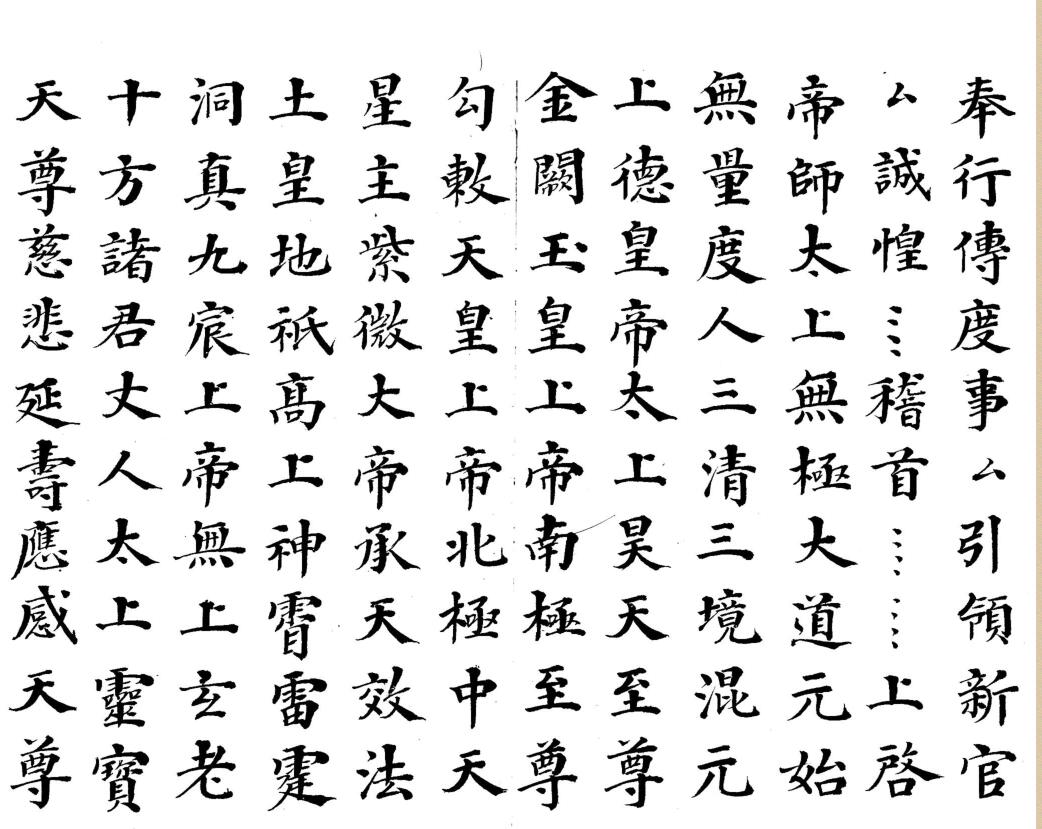 奉行傳度事厶引領新官
厶誠惶⋮稽首⋮⋮上啓
帝師太上無極大道元始
無量度人三清三境混元
上德皇帝太上昊天至尊
金闕玉皇上帝南極至尊
勾敕天皇上帝北極中天
星主紫微大帝承天效法
土皇地祇高上神霄雷霆
洞真九宸上帝無上玄老
十方諸君丈人太上靈寶
天尊慈悲延壽應感天尊